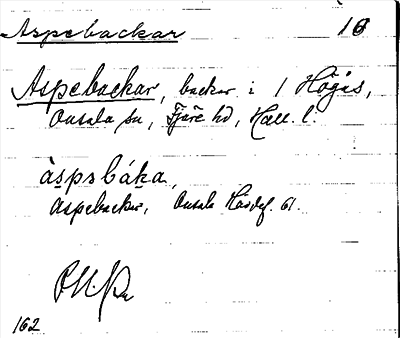 Aspebackar 16
Aspebackar, backar i 1 Högås,
Onsala sn, Fjäre hd, Hall. l.
àspsbáka,
Aspebackar, Onsala Häradsf. 61.
162